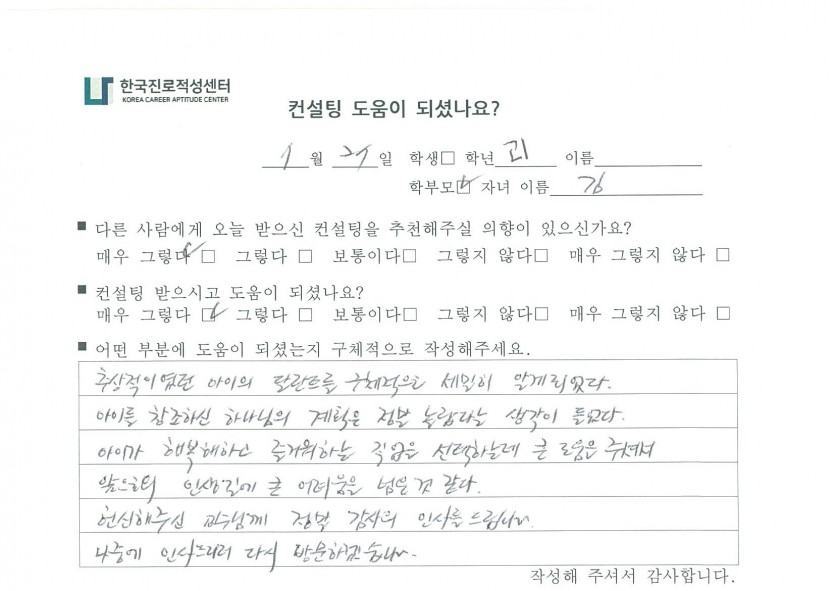 한국진로적성센터
KOREA CAREER APTITUDE CENTER
컨설팅 도움이 되셨나요?
1월 21일 학생□ 학년 고1 이름
학부모☑ 자녀 이름 김
■ 다른 사람에게 오늘 받으신 컨설팅을 추천해주실 의향이 있으신가요?
매우 그렇다 ☑ 그렇다 □ 보통이다□ 그렇지 않다□ 매우 그렇지 않다 □
■ 컨설팅 받으시고 도움이 되셨나요?
매우 그렇다 ☑ 그렇다 □ 보통이다□ 그렇지 않다□ 매우 그렇지 않다 □
■ 어떤 부분에 도움이 되셨는지 구체적으로 작성해주세요.
추상적이였던 아이의 달란트를 구체적으로 세밀히 알게되었다.
아이를 창조하신 하나님의 계획은 정말 놀랍다는 생각이 들었다.
아이가 행복해하고 즐거워하는 직업을 선택하는데 큰 도움은 주셔서
앞으로의 인생길에 큰 어려움을 넘은것 같다.
헌신해주신 교수님께 정말 감사의 인사를 드립니다.
나중에 인사드리러 다시 방문하겠습니다.
작성해 주셔서 감사합니다.